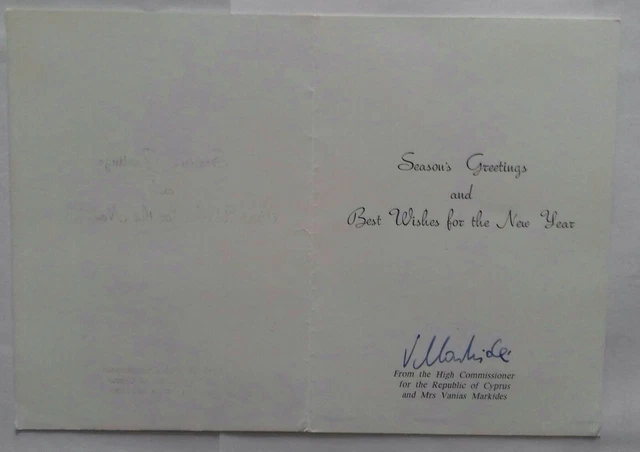 Season's Greetings
and
Best Wishes for the New Year
V Markides
From the High Commissioner
for the Republic of Cyprus
and Mrs Vanias Markides